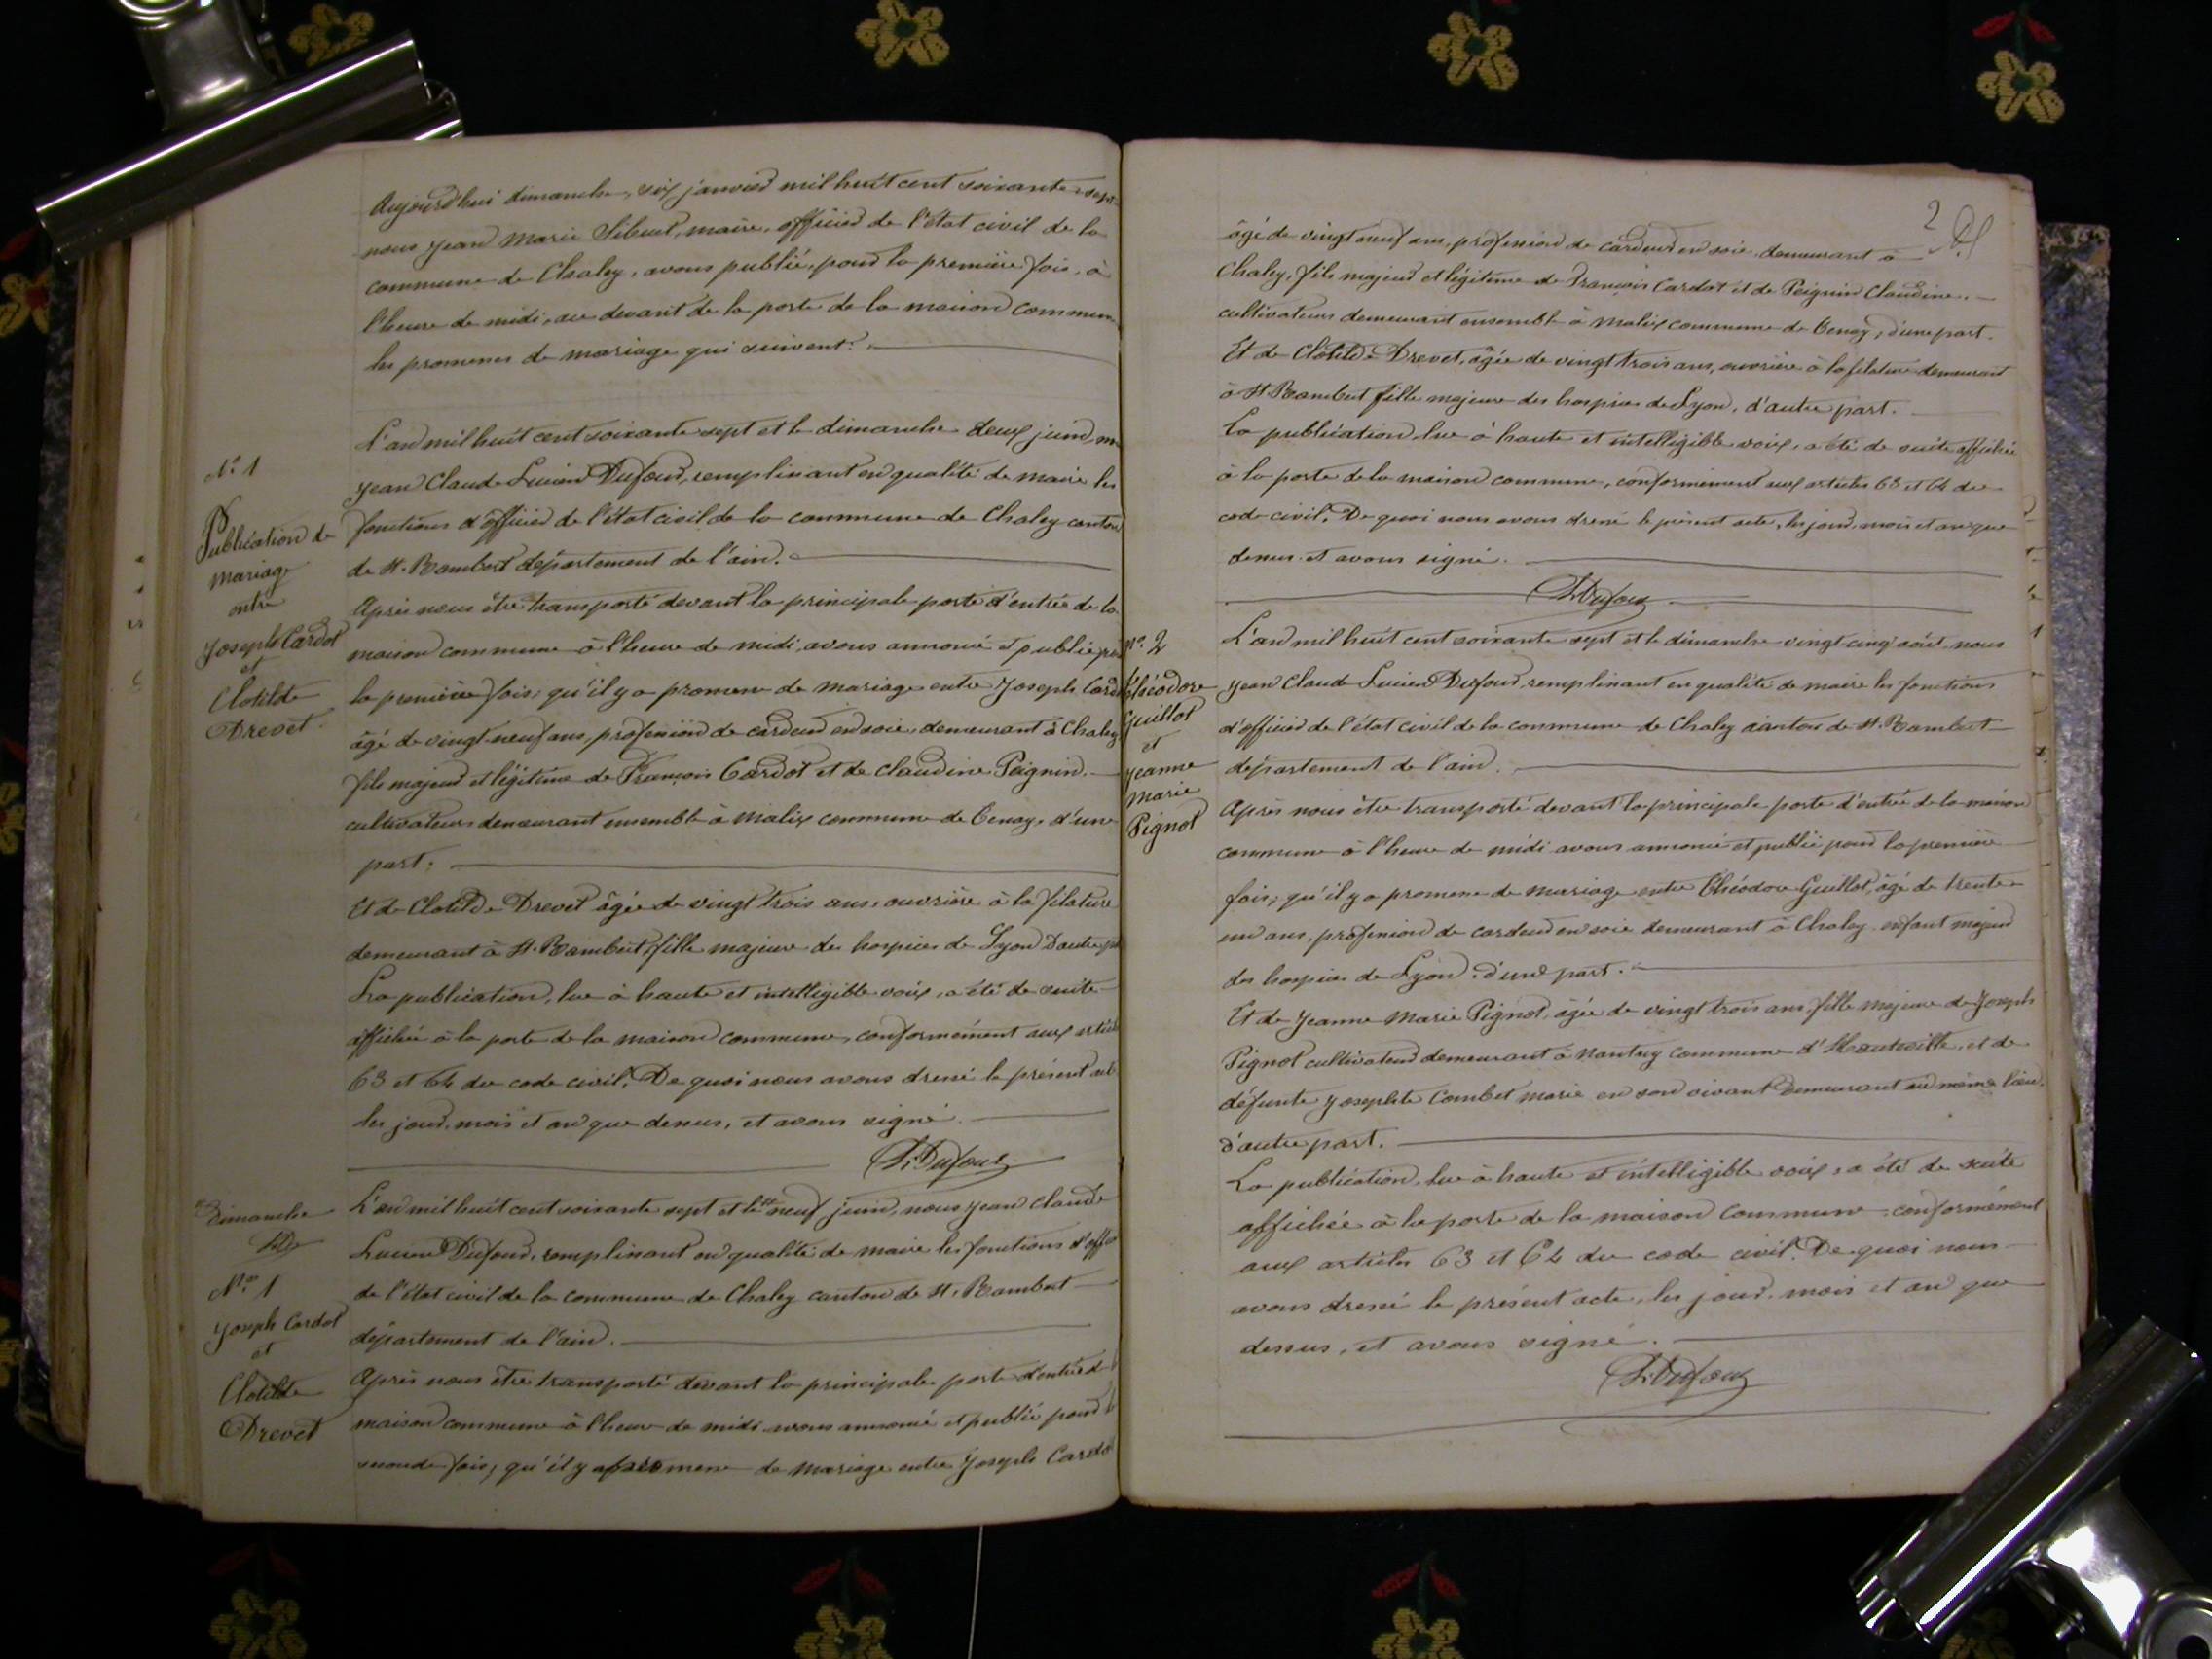 Aujourd'hui dimanche, six janvier mil huit cent soixante sept
nous Jean Marie Sibuet, maire, officier de l'état civil de la
commune de Chaley, avons publié, pour la première fois, à
l'heure de midi, au devant de la porte de la maison commune
les promesses de mariage qui suivent.
N° 1
Publication de
mariage
entre
Joseph Cardot
et
Clotilde
Drevet
L'an mil huit cent soixante sept et le dimanche deux juin, n
Jean Claude Lucien Dufour, remplissant en qualité de maire les
fonctions d'officier de l'état civil de la commune de Chaley canton
de St. Rambert département de l'ain.
Après nous être transporté devant la principale porte d'entrée de la
maison commune à l'heure de midi, avons annoncé et publié po
la première fois, qu'il y a promesse de mariage entre Joseph Card
âgé de vingt-neuf ans, profession de cardeur en soie, demeurant à Chaley
fils majeur et légitime de François Cardot et de Claudine Peignin.
cultivateurs demeurant ensemble à Malix commune de Tenay, d'une
part.
Et de Clotilde Drevet âgée de vingt trois ans, ouvrière à la filature
demeurant à St. Rambert, fille majeure des hospices de Lyon D'autre p
La publication, lue à haute et intelligible voix, a été de suite
affichée à la porte de la maison commune, conformément aux articl
63 et 64 du code civil. De quoi nous avons dressé le présent act
les jour, mois et an que dessus, et avons signé.
L. Dufour
dimanche
LD
N° 1
Joseph Cardot
et
Clotilde
Drevet
L'an mil huit cent soixante sept et le neuf juin, nous Jean Claude
Lucien Dufour, remplissant en qualité de maire les fonctions d'offi
de l'état civil de la commune de Chaley canton de St. Rambert
département de l'ain.
Après nous être transporté devant la principale porte d'entrée d
maison commune à l'heure de midi avons annoncé et publié pour l
seconde fois, qu'il y a promesse de mariage entre Joseph Cardo
2
âgé de vingt neuf ans, profession de cardeur en soie, demeurant à
Chaley, fils majeur et légitime de François Cardot et de Peignin Claudine.
cultivateurs demeurant ensemble à Malix commune de Tenay, d'une part.
Et de Clotilde Drevet, âgée de vingt trois ans, ouvrière à la filature demeurant
à St Rambert fille majeure des hospices de Lyon, d'autre part.
La publication, lue à haute et intelligible voix, a été de suite affichée
à la porte de la maison commune, conformément aux articles 63 et 64 du
code civil. De quoi nous avons dressé le présent acte, les jour, mois et an que
dessus et avons signé.
L. Dufour
N° 2
Théodore
Guillot
et
Jeanne
Marie
Pignot
L'an mil huit cent soixante sept et le dimanche vingt-cinq août nous
Jean Claude Lucien Dufour, remplissant en qualité de maire les fonctions
d'officier de l'état civil de la commune de Chaley canton de St. Rambert
département de l'ain.
Après nous être transporté devant la principale porte d'entrée de la maison
commune à l'heure de midi avons annoncé et publié pour la première
fois, qu'il y a promesse de mariage entre Théodore Guillot, âgé de trente
un ans, profession de cardeur en soie demeurant à Chaley enfant majeur
des hospices de Lyon, d'une part.
Et de Jeanne Marie Pignot, âgée de vingt trois ans, fille majeure de Joseph
Pignot cultivateur demeurant à Nantuy commune d'Hauteville, et de
défunte Josephte Combet Marie en son vivant Demeurant au même lieu.
d'autre part.
La publication, lue à haute et intelligible voix, a été de suite
affichée à la porte de la maison commune, conformément
aux articles 63 et 64 du code civil. De quoi nous
avons dressé le présent acte, les jour, mois et an que
dessus, et avons signé.
L. Dufour